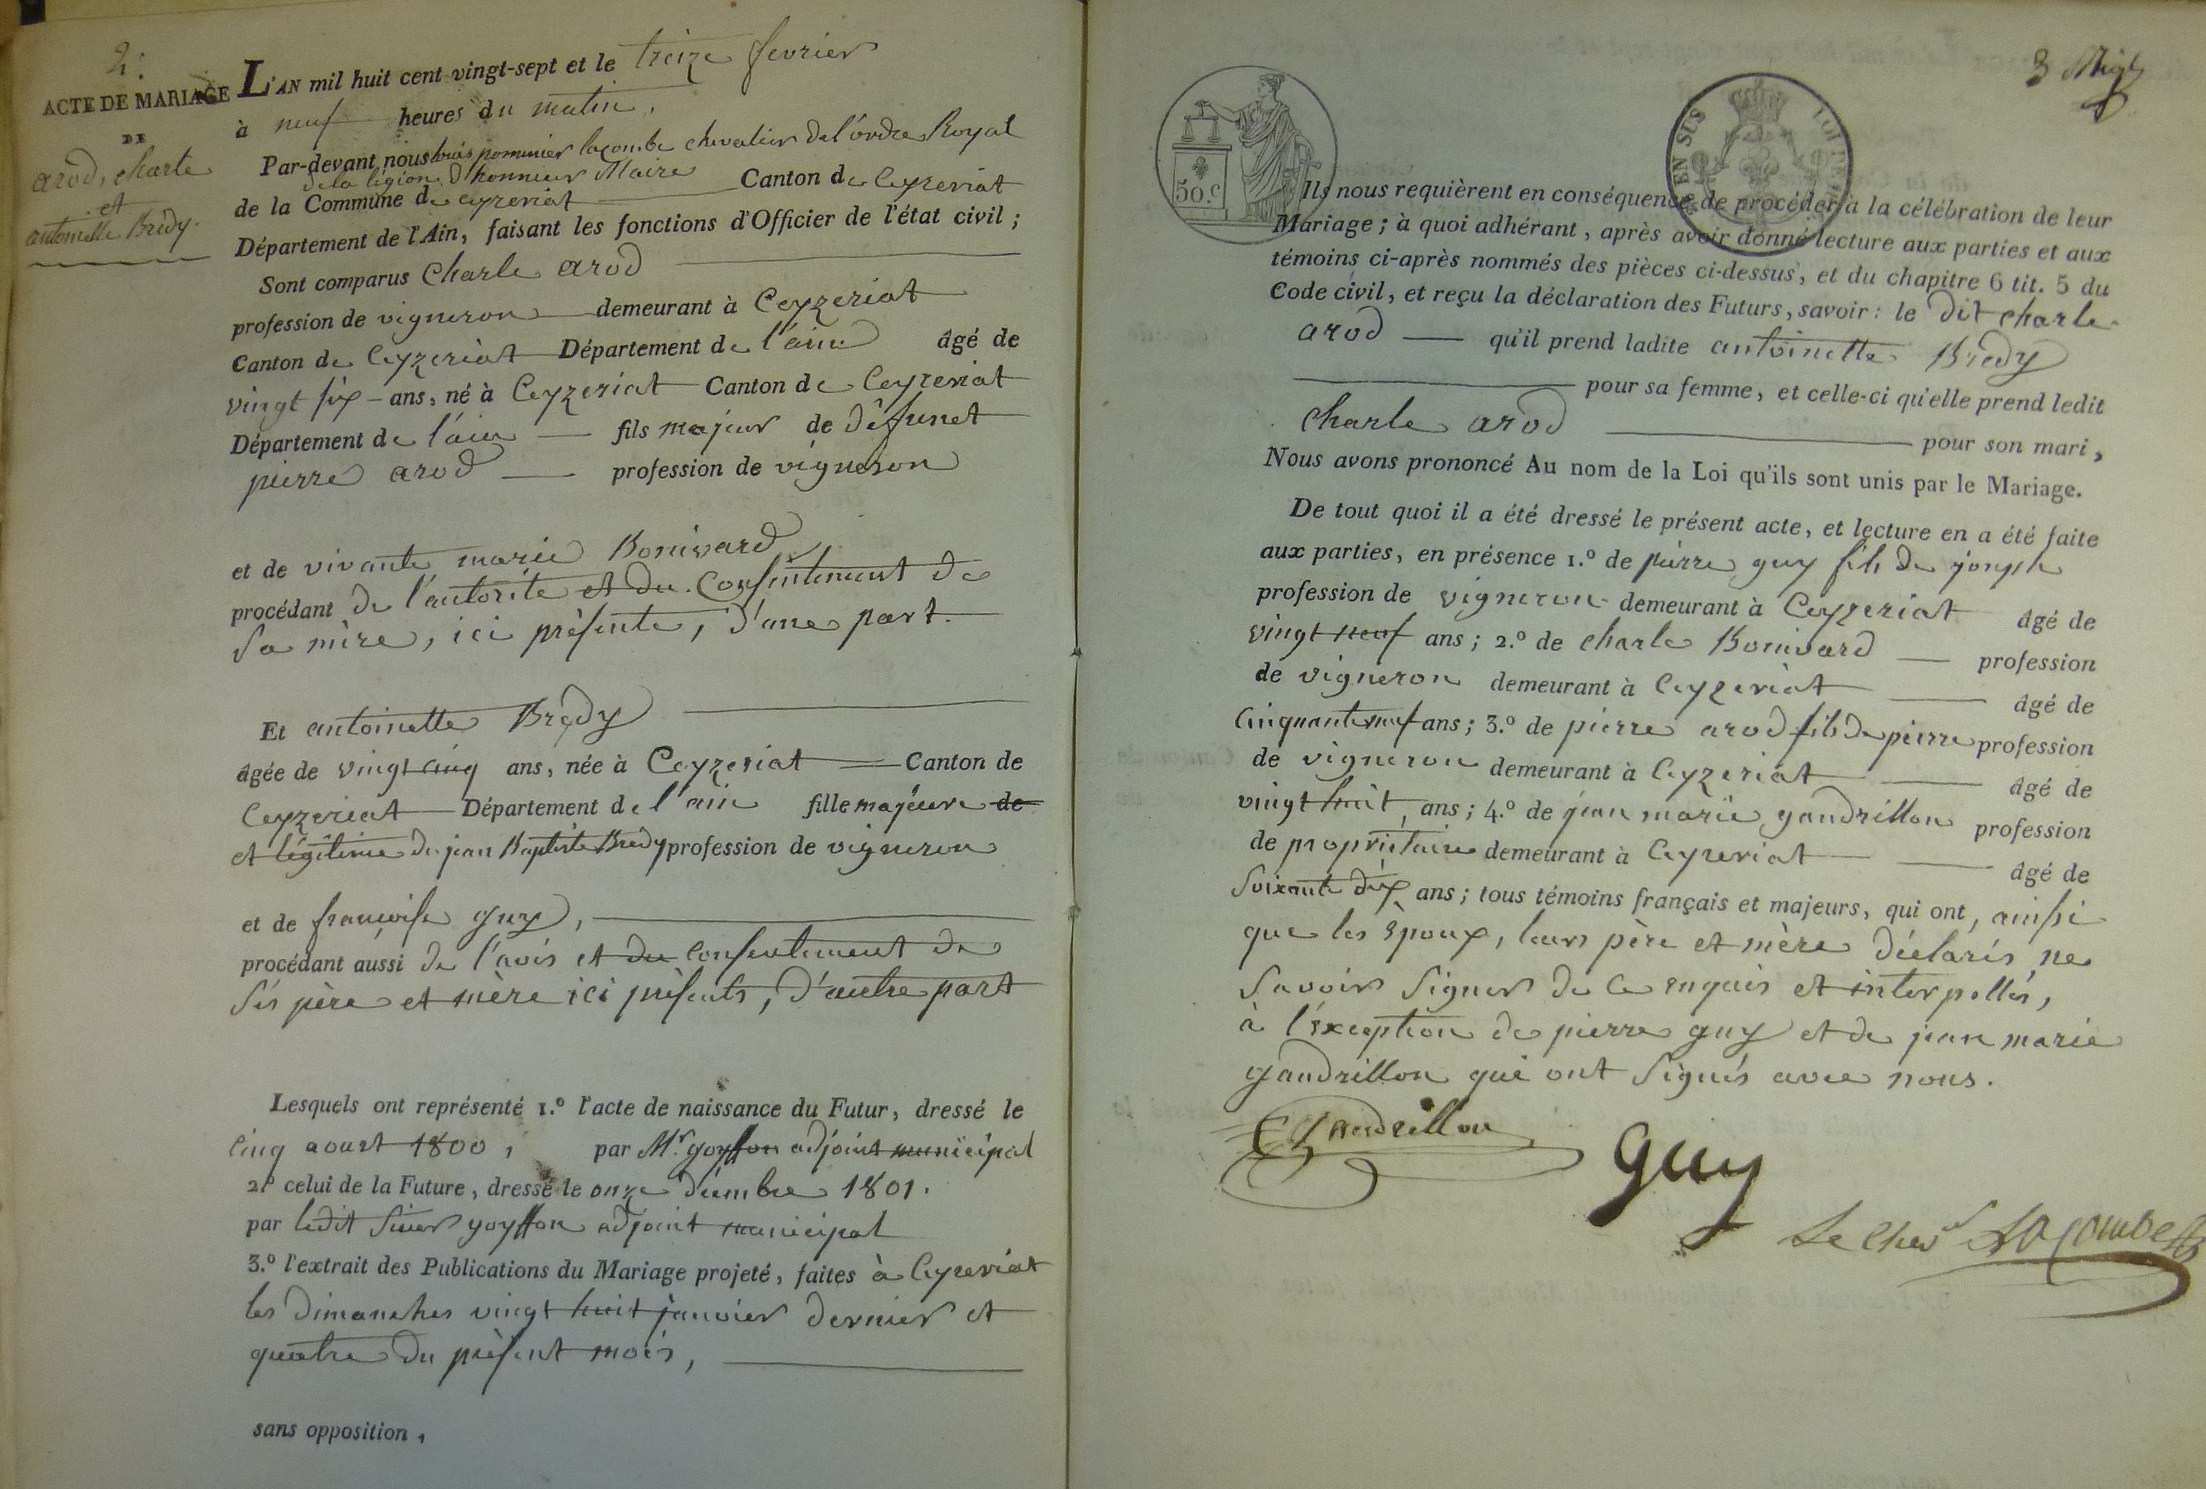 2.
ACTE DE MARIAGE
DE
arod, charle
et
antoinette Bredy.
L'AN mil huit cent vingt-sept et le treize fevrier
à neuf heures du matin,
Par-devant nous pommier lacombe chevalier de l'ordre Royal
de la légion d'honneur Maire
de la Commune de ceyzeriat Canton de Ceyzeriat
Département de l'Ain, faisant les fonctions d'Officier de l'état civil ;
Sont comparus Charle arod
profession de vigneron demeurant à Ceyzeriat
Canton de Ceyzeriat Département de l'ain âgé de
vingt six ans, né à Ceyzeriat Canton de Ceyzeriat
Département de l'ain fils majeur de défunct
pierre arod profession de vigneron
et de vivante marie Bonivard
procédant de l'autorité et du consentement de
sa mère, ici présente, d'une part.
Et antoinette Bredy
âgée de vingt cinq ans, née à Ceyzeriat Canton de
Ceyzeriat Département de l'ain fille majeure de
et légitime de jean Baptiste Bredy profession de vigneron
et de francoise guy,
procédant aussi de l'avis et du consentement de
ses père et mère ici présents, d'autre part
Lesquels ont représenté 1.º l'acte de naissance du Futur, dressé le
cinq aoust 1800, par Mr. goyffon adjoint municipal
2.º celui de la Future, dressé le onze décembre 1801.
par ledit sieur goyffon adjoint municipal
3.º l'extrait des Publications du Mariage projeté, faites à Ceyzeriat
les dimanches vingt huit janvier dernier et
quatre du présent mois,
sans opposition,
3
50.C
EN SUS
Ils nous requièrent en conséquence de procéder à la célébration de leur
Mariage ; à quoi adhérant, après avoir donné lecture aux parties et aux
témoins ci-après nommés des pièces ci-dessus, et du chapitre 6 tit. 5 du
Code civil, et reçu la déclaration des Futurs, savoir : le dit charle
arod qu'il prend ladite antoinette Bredy
pour sa femme, et celle-ci qu'elle prend ledit
charle arod pour son mari,
Nous avons prononcé Au nom de la Loi qu'ils sont unis par le Mariage.
De tout quoi il a été dressé le présent acte, et lecture en a été faite
aux parties, en présence 1.º de pierre guy fils de joseph
profession de vigneron demeurant à Ceyzeriat âgé de
vingt neuf ans ; 2.º de charle Bonivard profession
de vigneron demeurant à Ceyzeriat âgé de
cinquante neuf ans ; 3.º de pierre arod fils de pierre profession
de vigneron demeurant à Ceyzeriat âgé de
vingt huit ans ; 4.º de jean marie gandrillon profession
de propriétaire demeurant à Ceyzeriat âgé de
soixante dix ans ; tous témoins français et majeurs, qui ont, ainsi
que les époux, leurs père et mère déclarés ne
savoir signer de ce enquis et interpellés,
à l'exception de pierre guy et de jean marie
gandrillon qui ont signés avec nous.
Gandrillon
guy
Le Cher Lacombe